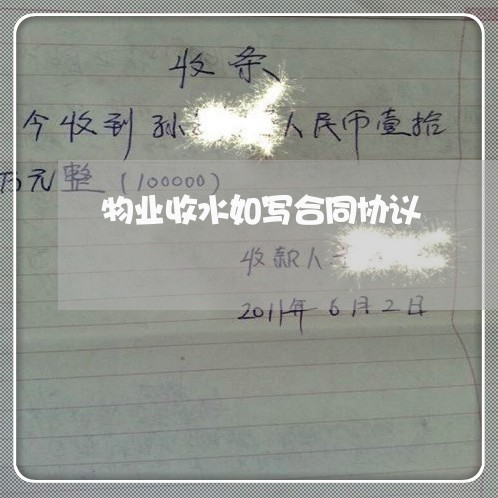 收条
今收到孙 人民币壹拾
万元整(100000)
物业收水如写合同协议
收款人
2011年6月2日